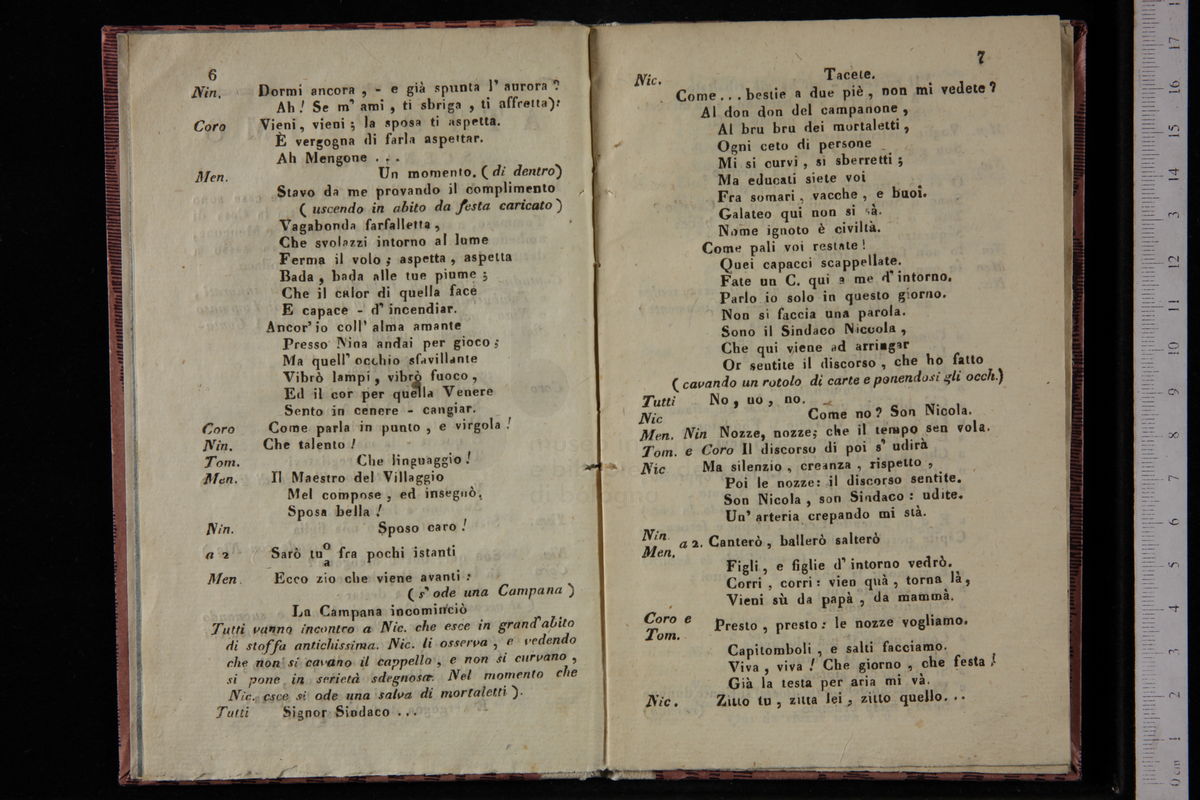 6
Nin. Dormi ancora, - e già spunta l' aurora?
Ah! Se m' ami, ti sbriga, ti affretta):
Coro Vieni, vieni; la sposa ti aspetta.
È vergogna di farla aspettar.
Ah Mengone . . .
Men. Un momento. (di dentro)
Stavo da me provando il complimento
(uscendo in abito da festa caricato)
Vagabonda farfalletta,
Che svolazzi intorno al lume
Ferma il volo; aspetta, aspetta
Bada, bada alle tue piume;
Che il calor di quella face
E capace - d' incendiar.
Ancor' io coll' alma amante
Presso Nina andai per gioco;
Ma quell' occhio sfavillante
Vibrò lampi, vibrò fuoco,
Ed il cor per quella Venere
Sento in cenere - cangiar.
Coro Come parla in punto, e virgola!
Nin. Che talento!
Tom. Che linguaggio!
Men. Il Maestro del Villaggio
Mel compose, ed insegnò.
Sposa bella!
Nin. Sposo caro!
a 2 Sarò tuo/a fra pochi istanti
Men. Ecco zio che viene avanti:
(s' ode una Campana)
La Campana incominciò
Tutti vanno incontro a Nic. che esce in grand'abito
di stoffa antichissima. Nic. li osserva, e vedendo
che non si cavano il cappello, e non si curvano,
si pone in serietà sdegnosa. Nel momento che
Nic. esce si ode una salva di mortaletti).
Tutti Signor Sindaco . . .
7
Nic. Tacete.
Come . . . bestie a due piè, non mi vedete?
Al don don del campanone,
Al bru bru dei mortaletti,
Ogni ceto di persone
Mi si curvi, si sberretti;
Ma educati siete voi
Fra somari, vacche, e buoi.
Galateo qui non si sà.
Nome ignoto è civiltà.
Come pali voi restate!
Quei capacci scappellate.
Fate un C. qui a me d' intorno.
Parlo io solo in questo giorno.
Non si faccia una parola.
Sono il Sindaco Niccola,
Che qui viene ad arringar
Or sentite il discorso, che ho fatto
(cavando un rotolo di carte e ponendosi gli occh.)
Tutti No, uo, no.
Nic Come no? Son Nicola.
Men. Nin Nozze, nozze; che il tempo sen vola.
Tom. e Coro Il discorso di poi s' udirà
Nic Ma silenzio, creanza, rispetto,
Poi le nozze: il discorso sentite.
Son Nicola, son Sindaco: udite.
Un' arteria crepando mi stà.
Nin.
Men. a 2. Canterò, ballerò salterò
Figli, e figlie d' intorno vedrò.
Corri, corri: vien quà, torna là,
Vieni sù da papà, da mammà.
Coro e
Tom. Presto, presto: le nozze vogliamo.
Capitomboli, e salti facciamo.
Viva, viva! Che giorno, che festa!
Già la testa per aria mi và.
Nic. Zitto tu, zitta lei, zitto quello. . .
0 cm 1 2 3 4 5 6 7 8 9 10 11 12 13 14 15 16 17